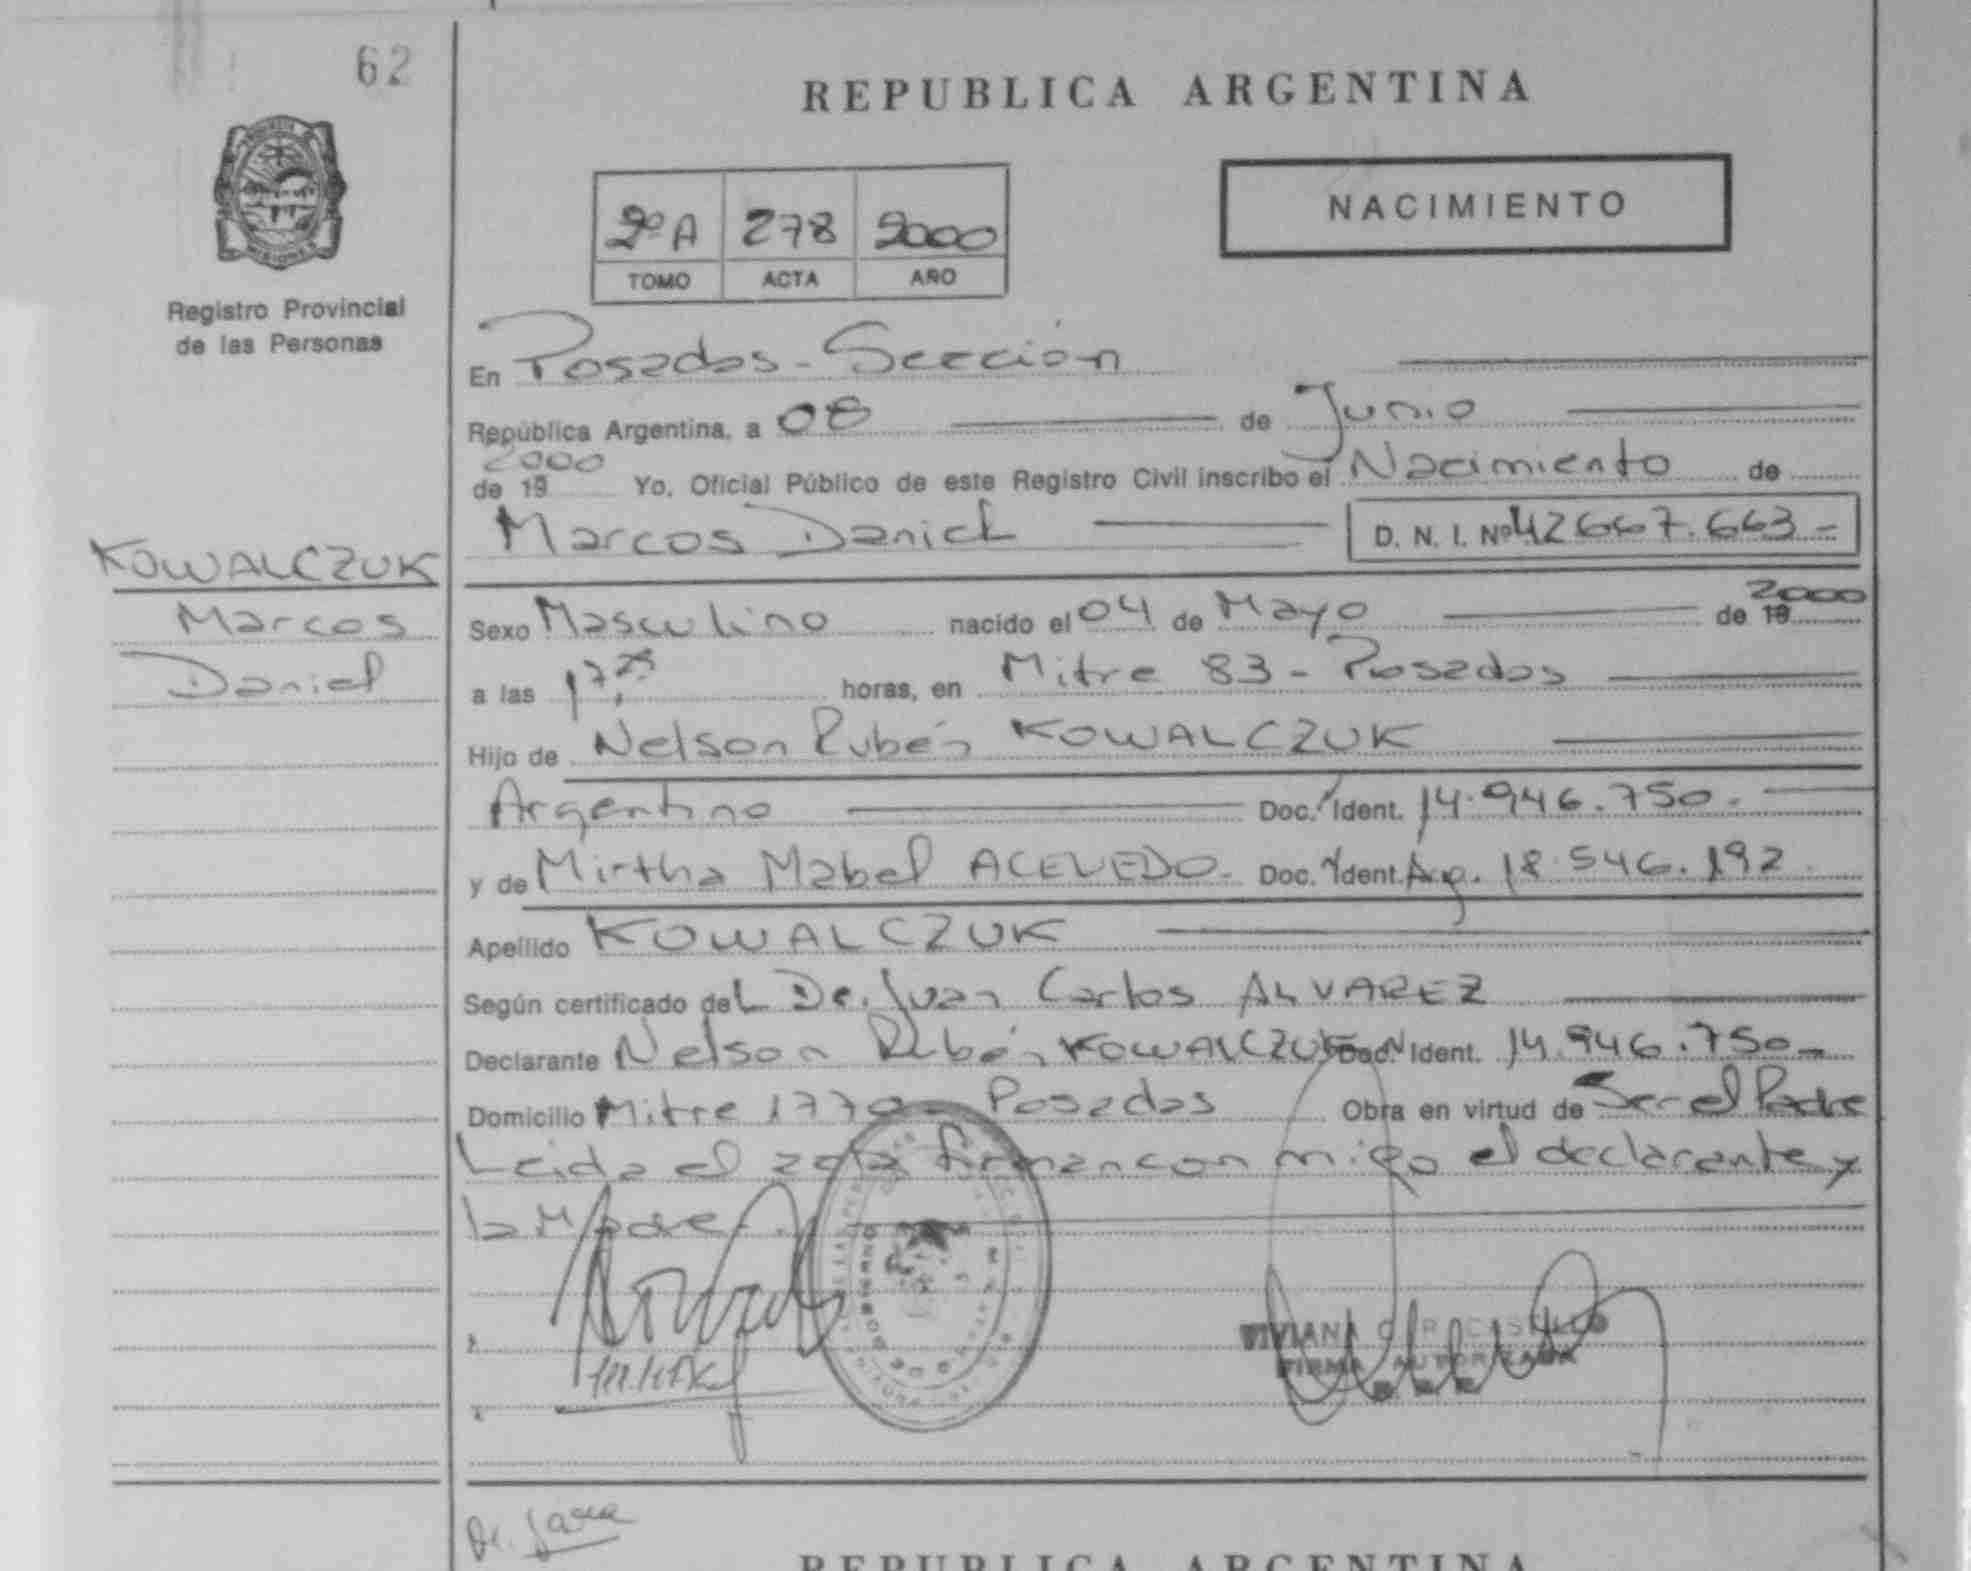 62
REPUBLICA ARGENTINA
NACIMIENTO
2º A 278 2000
TOMO ACTA AÑO
Registro Provincial
de las Personas
En Posadas - Sección
República Argentina, a 08 de Junio
2000
de 19 Yo, Oficial Público de este Registro Civil inscribo el Nacimiento de
Marcos Daniel D. N. I. Nº 42667.663-
KOWALCZUK
Marcos
Daniel
Sexo Masculino nacido el 04 de Mayo de 19 2000
a las 17,25 horas, en Mitre 83 - Posadas
Hijo de Nelson Rubén KOWALCZUK
Argentino Doc. Ident. 14.946.750.
y de Mirtha Mabel ACEVEDO. Doc. Ident. Arg. 18.546.192.
Apellido KOWALCZUK
Según certificado del Dr. Juan Carlos ALVAREZ
Declarante Nelson Rubén KOWALCZUK Doc. Ident. 14.946.750-
Domicilio Mitre 1770 - Posadas Obra en virtud de Ser el Padre
Leida el acta firman con migo el declarante y
la Madre.-
VIVIANA CASTILLO
FIRMA AUTORIZADA
REPUBLICA ARGENTINA